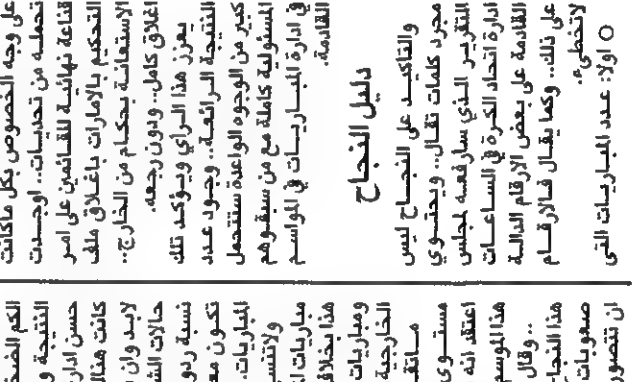 على وجه الخصوص بكل ماكانت
تحمله من تحديات.. اوجدت
قناعة نهائية للقائمين على امر
التحكيم بالامارات باغلاق ملف
الاستعانة بحكام من الخارج..
اغلاق كامل.. ودون رجعه.
يعزز هذا الراي ويؤكد تلك
النتيجة الرائعة.. وجود عدد
كبير من الوجوه الواعدة ستتحمل
المسئولية كاملة مع من سبقوهم
في ادارة المباريات في المواسم
القادمة.
دليل النجاح
والتاكيد على النجاح ليس
مجرد كلمات تقال.. ويحتوي
التقرير الذي سارفعه لمجلس
ادارة اتحاد الكرة في الساعات
القادمة على بعض الارقام الدالة
على ذلك.. وكما يقال فالارقام
لاتخطيء.
○ اولا: عدد المباريات التي
الكم الضخ
النتيجة و
حسن ادار
كانت هنا
لابد وان
حالات الش
نسبة ردو
تكون مع
المباريات.
ولانتس
مباريات
هذا بخلاف
ومباريات
الخارجية
ماتق
مستوى
اعتقد انه
هذا الموسم
.. وقال
هذا النجا
صعوبات
ان نتصور